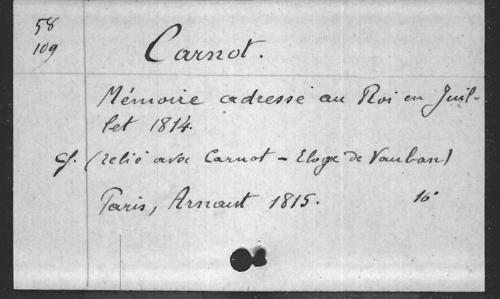 58
109
Carnot.
Mémoire adressé au Roi en Juil-
let 1814.
cf. (relié avec Carnot - Eloge de Vauban)
Paris, Arnaut 1815. 16°